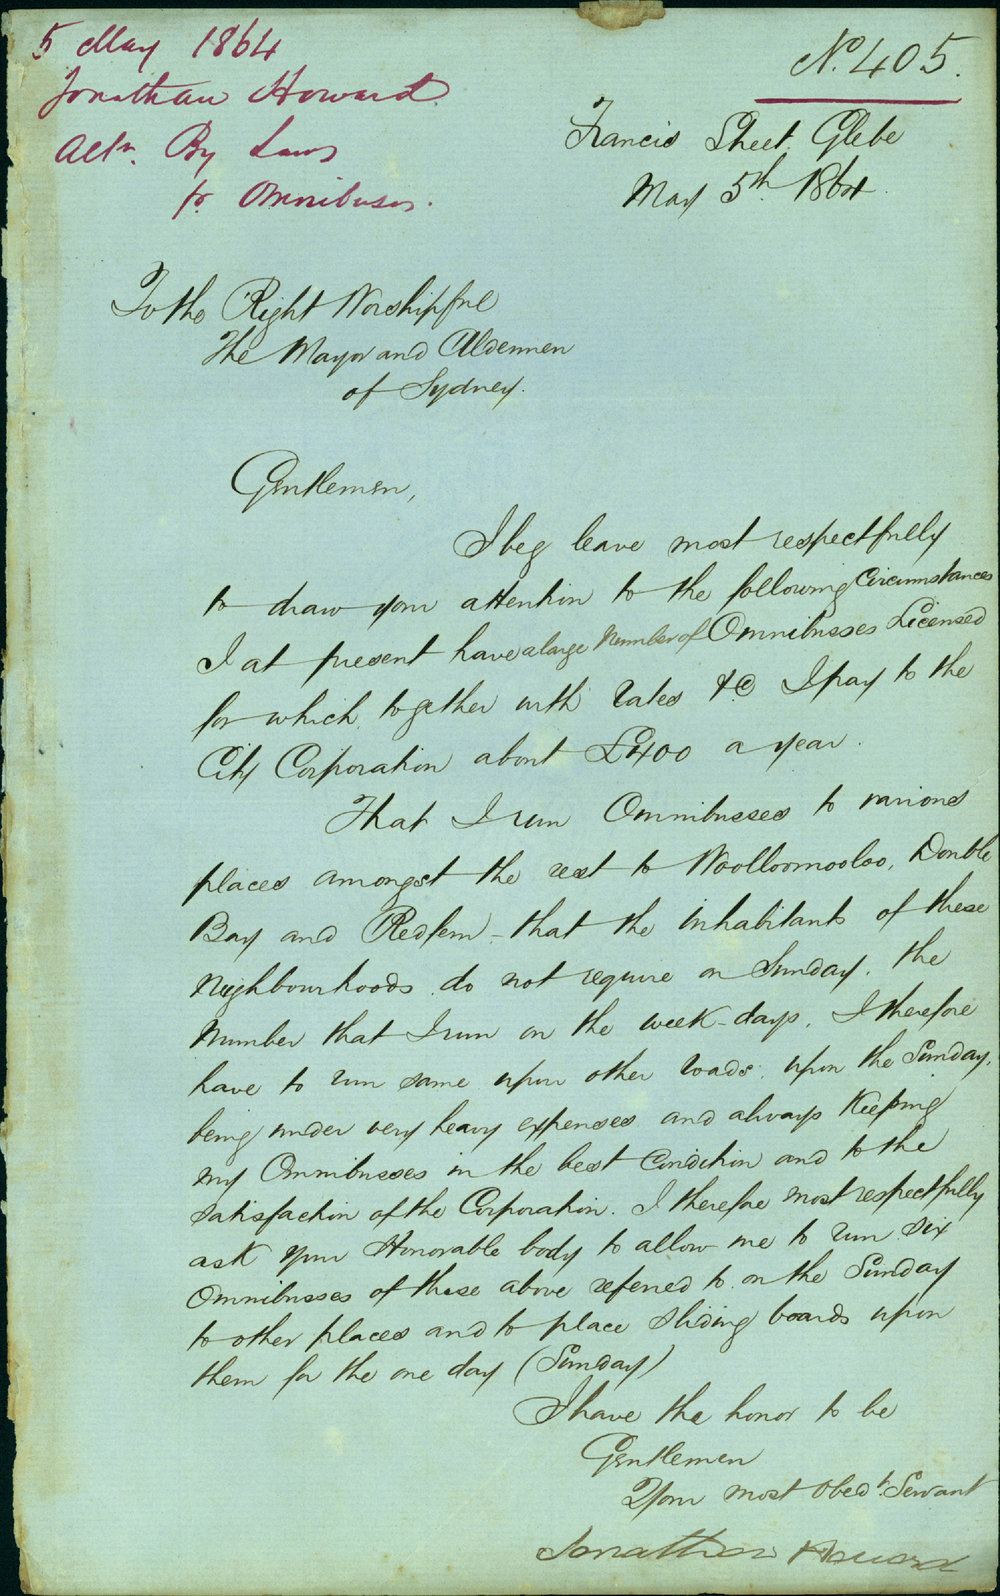 5 May 1864
Jonathan Howard
Altn. By Laws
fr. Omnibuses.
No. 405.
Francis Street Glebe
May 5th 1864.
To the Right Worshipful
The Mayor and Aldermen
of Sydney.
Gentlemen,
I beg leave most respectfully
to draw your attention to the following Circumstances
I at present have a large Number of Omnibusses Licensed
for which together with rates &c I pay to the
City Corporation about £400 a year.
That I run Omnibusses to various
places amongst the rest to Woolloomooloo, Double
Bay and Redfern - that the inhabitants of these
Neighbourhoods do not require on Sunday. the
Number that I run on the week-days. I therefore
have to run some upon other roads upon the Sunday,
being under very heavy expenses and always Keeping
my Omnibusses in the best Condition and to the
satisfaction of the Corporation. I therefore most respectfully
ask your Honorable body to allow me to run six
Omnibusses of those above referred to on the Sunday
to other places and to place sliding boards upon
them for the one day (Sunday)
I have the honor to be
Gentlemen
Your most Obedt. Servant
Jonathan Howard